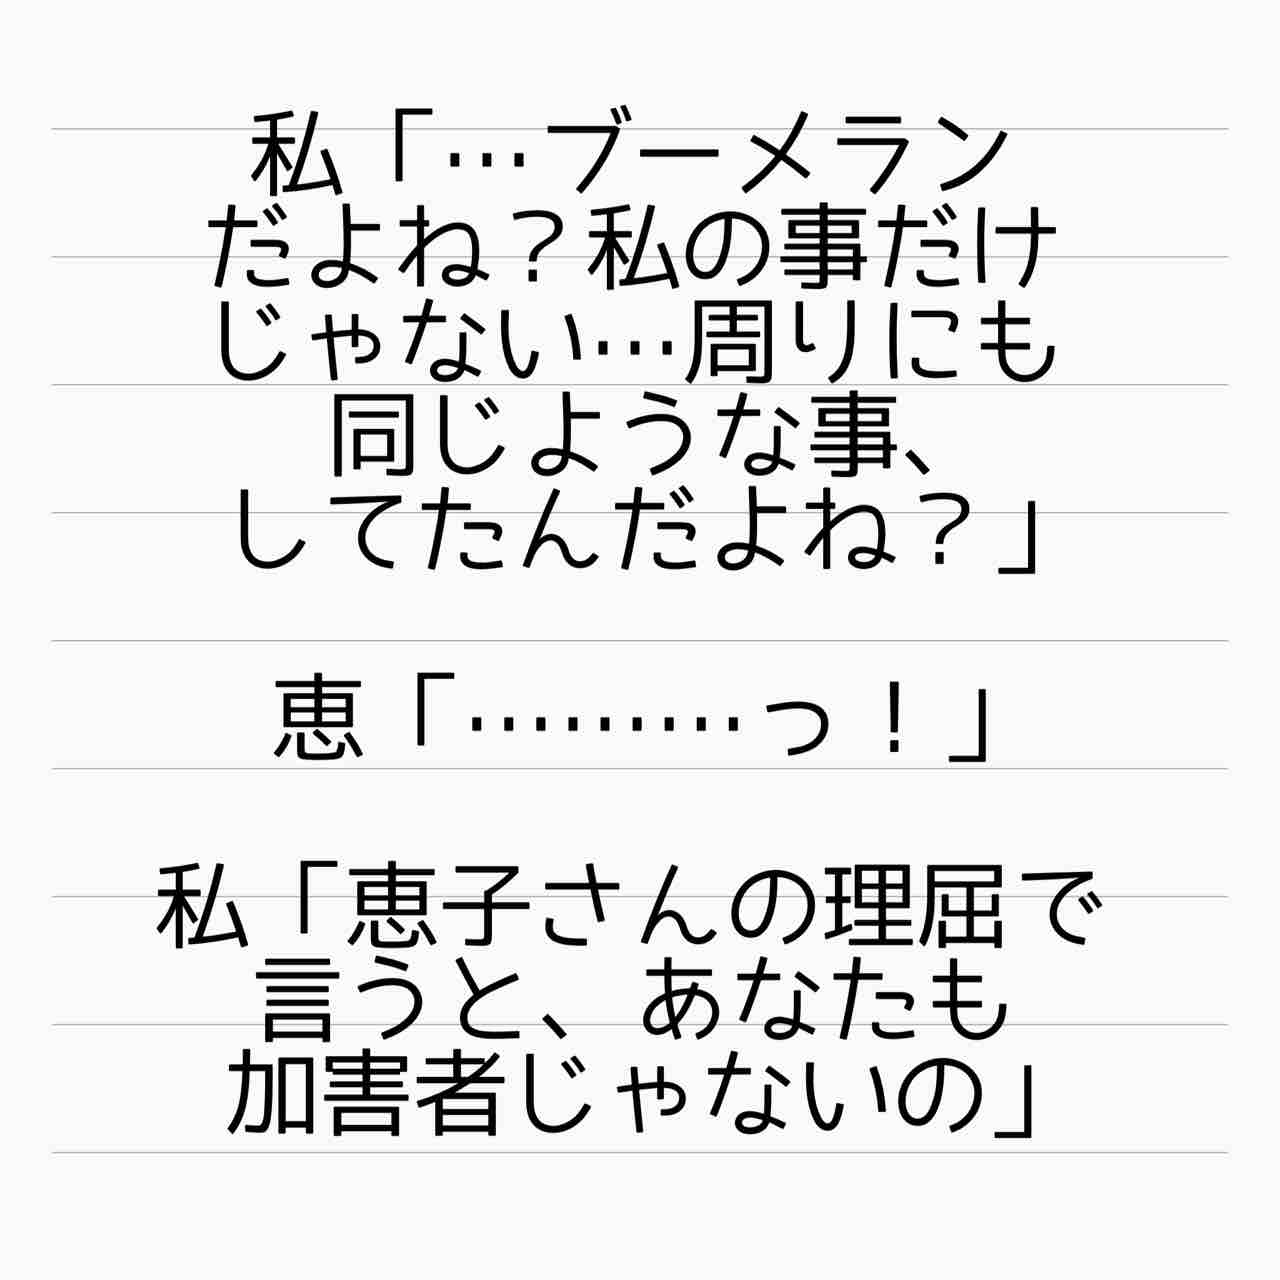 私「…ブーメラン
だよね？私の事だけ
じゃない…周りにも
同じような事、
してたんだよね？」
恵「………っ！」
私「恵子さんの理屈で
言うと、あなたも
加害者じゃないの」